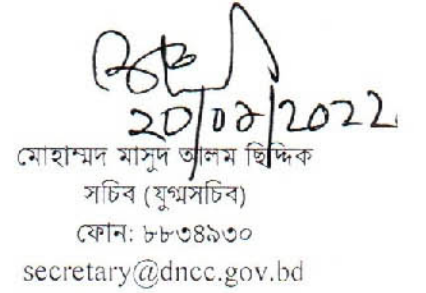 মোহাম্মদ মাসুদ আলম ছিদ্দিক
সচিব (যুগ্মসচিব)
ফোন: ৮৮৩৪৯৩০
secretary@dncc.gov.bd